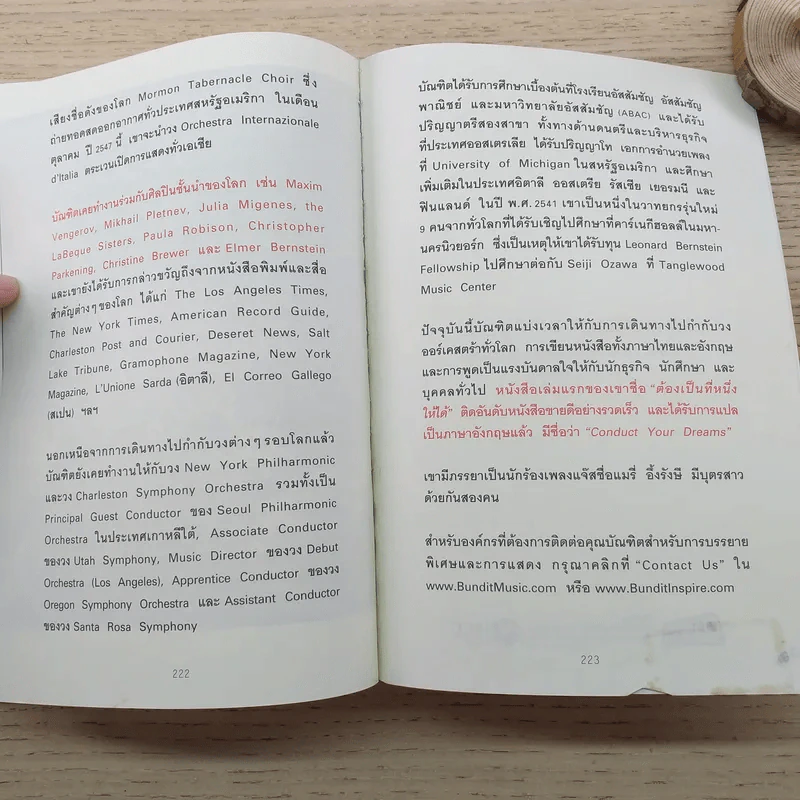 เสียงชื่อดังของโลก Mormon Tabernacle Choir ซึ่ง
ถ่ายทอดสดออกอากาศทั่วประเทศสหรัฐอเมริกา ในเดือน
ตุลาคม ปี 2547 นี้ เขาจะนำวง Orchestra Internazionale
d'Italia ตระเวนเปิดการแสดงทั่วเอเซีย
บัณฑิตเคยทำงานร่วมกับศิลปินชั้นนำของโลก เช่น Maxim
Vengerov, Mikhail Pletnev, Julia Migenes, the
LaBeque Sisters, Paula Robison, Christopher
Parkening, Christine Brewer และ Elmer Bernstein
และเขายังได้รับการกล่าวขวัญถึงจากหนังสือพิมพ์และสื่อ
สำคัญต่างๆของโลก ได้แก่ The Los Angeles Times,
The New York Times, American Record Guide,
Charleston Post and Courier, Deseret News, Salt
Lake Tribune, Gramophone Magazine, New York
Magazine, L'Unione Sarda (อิตาลี), El Correo Gallego
(สเปน) ฯลฯ
นอกเหนือจากการเดินทางไปกำกับวงต่างๆ รอบโลกแล้ว
บัณฑิตยังเคยทำงานให้กับวง New York Philharmonic
และวง Charleston Symphony Orchestra รวมทั้งเป็น
Principal Guest Conductor ของ Seoul Philharmonic
Orchestra ในประเทศเกาหลีใต้, Associate Conductor
ของวง Utah Symphony, Music Director ของวง Debut
Orchestra (Los Angeles), Apprentice Conductor ของวง
Oregon Symphony Orchestra และ Assistant Conductor
ของวง Santa Rosa Symphony
222
บัณฑิตได้รับการศึกษาเบื้องต้นที่โรงเรียนอัสสัมชัญ อัสสัมชัญ
พาณิชย์ และมหาวิทยาลัยอัสสัมชัญ (ABAC) และได้รับ
ปริญญาตรีสองสาขา ทั้งทางด้านดนตรีและบริหารธุรกิจ
ที่ประเทศออสเตรเลีย ได้รับปริญญาโท เอกการอำนวยเพลง
ที่ University of Michigan ในสหรัฐอเมริกา และศึกษา
เพิ่มเติมในประเทศอิตาลี ออสเตรีย รัสเซีย เยอรมนี และ
ฟินแลนด์ ในปี พ.ศ. 2541 เขาเป็นหนึ่งในวาทยกรรุ่นใหม่
9 คนจากทั่วโลกที่ได้รับเชิญไปศึกษาที่คาร์เนกีฮอลล์ในมหา-
นครนิวยอร์ก ซึ่งเป็นเหตุให้เขาได้รับทุน Leonard Bernstein
Fellowship ไปศึกษาต่อกับ Seiji Ozawa ที่ Tanglewood
Music Center
ปัจจุบันนี้บัณฑิตแบ่งเวลาให้กับการเดินทางไปกำกับวง
ออร์เคสตร้าทั่วโลก การเขียนหนังสือทั้งภาษาไทยและอังกฤษ
และการพูดเป็นแรงบันดาลใจให้กับนักธุรกิจ นักศึกษา และ
บุคคลทั่วไป หนังสือเล่มแรกของเขาชื่อ "ต้องเป็นที่หนึ่ง
ให้ได้" ติดอันดับหนังสือขายดีอย่างรวดเร็ว และได้รับการแปล
เป็นภาษาอังกฤษแล้ว มีชื่อว่า "Conduct Your Dreams"
เขามีภรรยาเป็นนักร้องเพลงแจ๊สชื่อแมรี่ อึ้งรังษี มีบุตรสาว
ด้วยกันสองคน
สำหรับองค์กรที่ต้องการติดต่อคุณบัณฑิตสำหรับการบรรยาย
พิเศษและการแสดง กรุณาคลิกที่ "Contact Us" ใน
www.BunditMusic.com หรือ www.BunditInspire.com
223